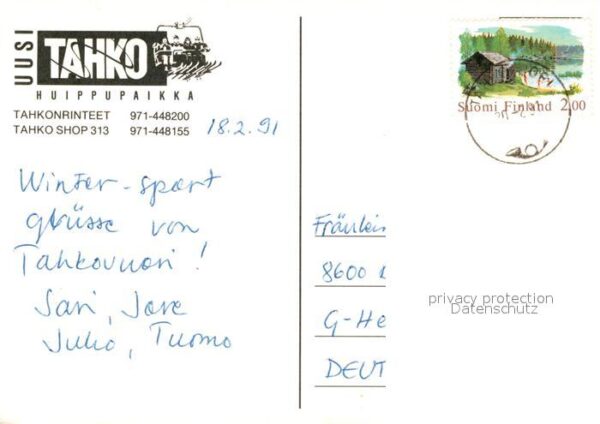 UUSI
TAHKO
HUIPPUPAIKKA
TAHKONRINTEET 971-448200
TAHKO SHOP 313 971-448155
18.2.91
Suomi Finland 2.00
Winter-sport
grüsse von
Tahkovuori!
Sari, Jore
Juho, Tuomo
Fräulein
8600
G-He
DEUT
privacy protection
Datenschutz